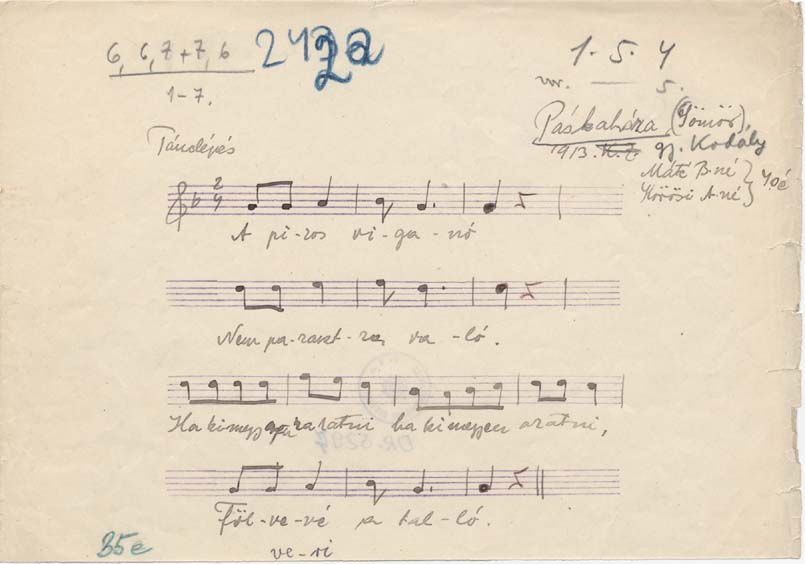 6, 6, 7+7, 6
1-7.
1. 5. 4
vr. — 5.
Páskaháza (Gömör),
1913. gy. Kodály
Máté B-né
Kőrösi A-né
Tánclépés
2
4
A pi-ros vi-ga-nó
Nem pa-raszt-ra va-ló.
Ha kimegy aratni ha kimegyen aratni,
Föl-ve-vé a tal-ló.
ve-ri
DR. 5294
35e